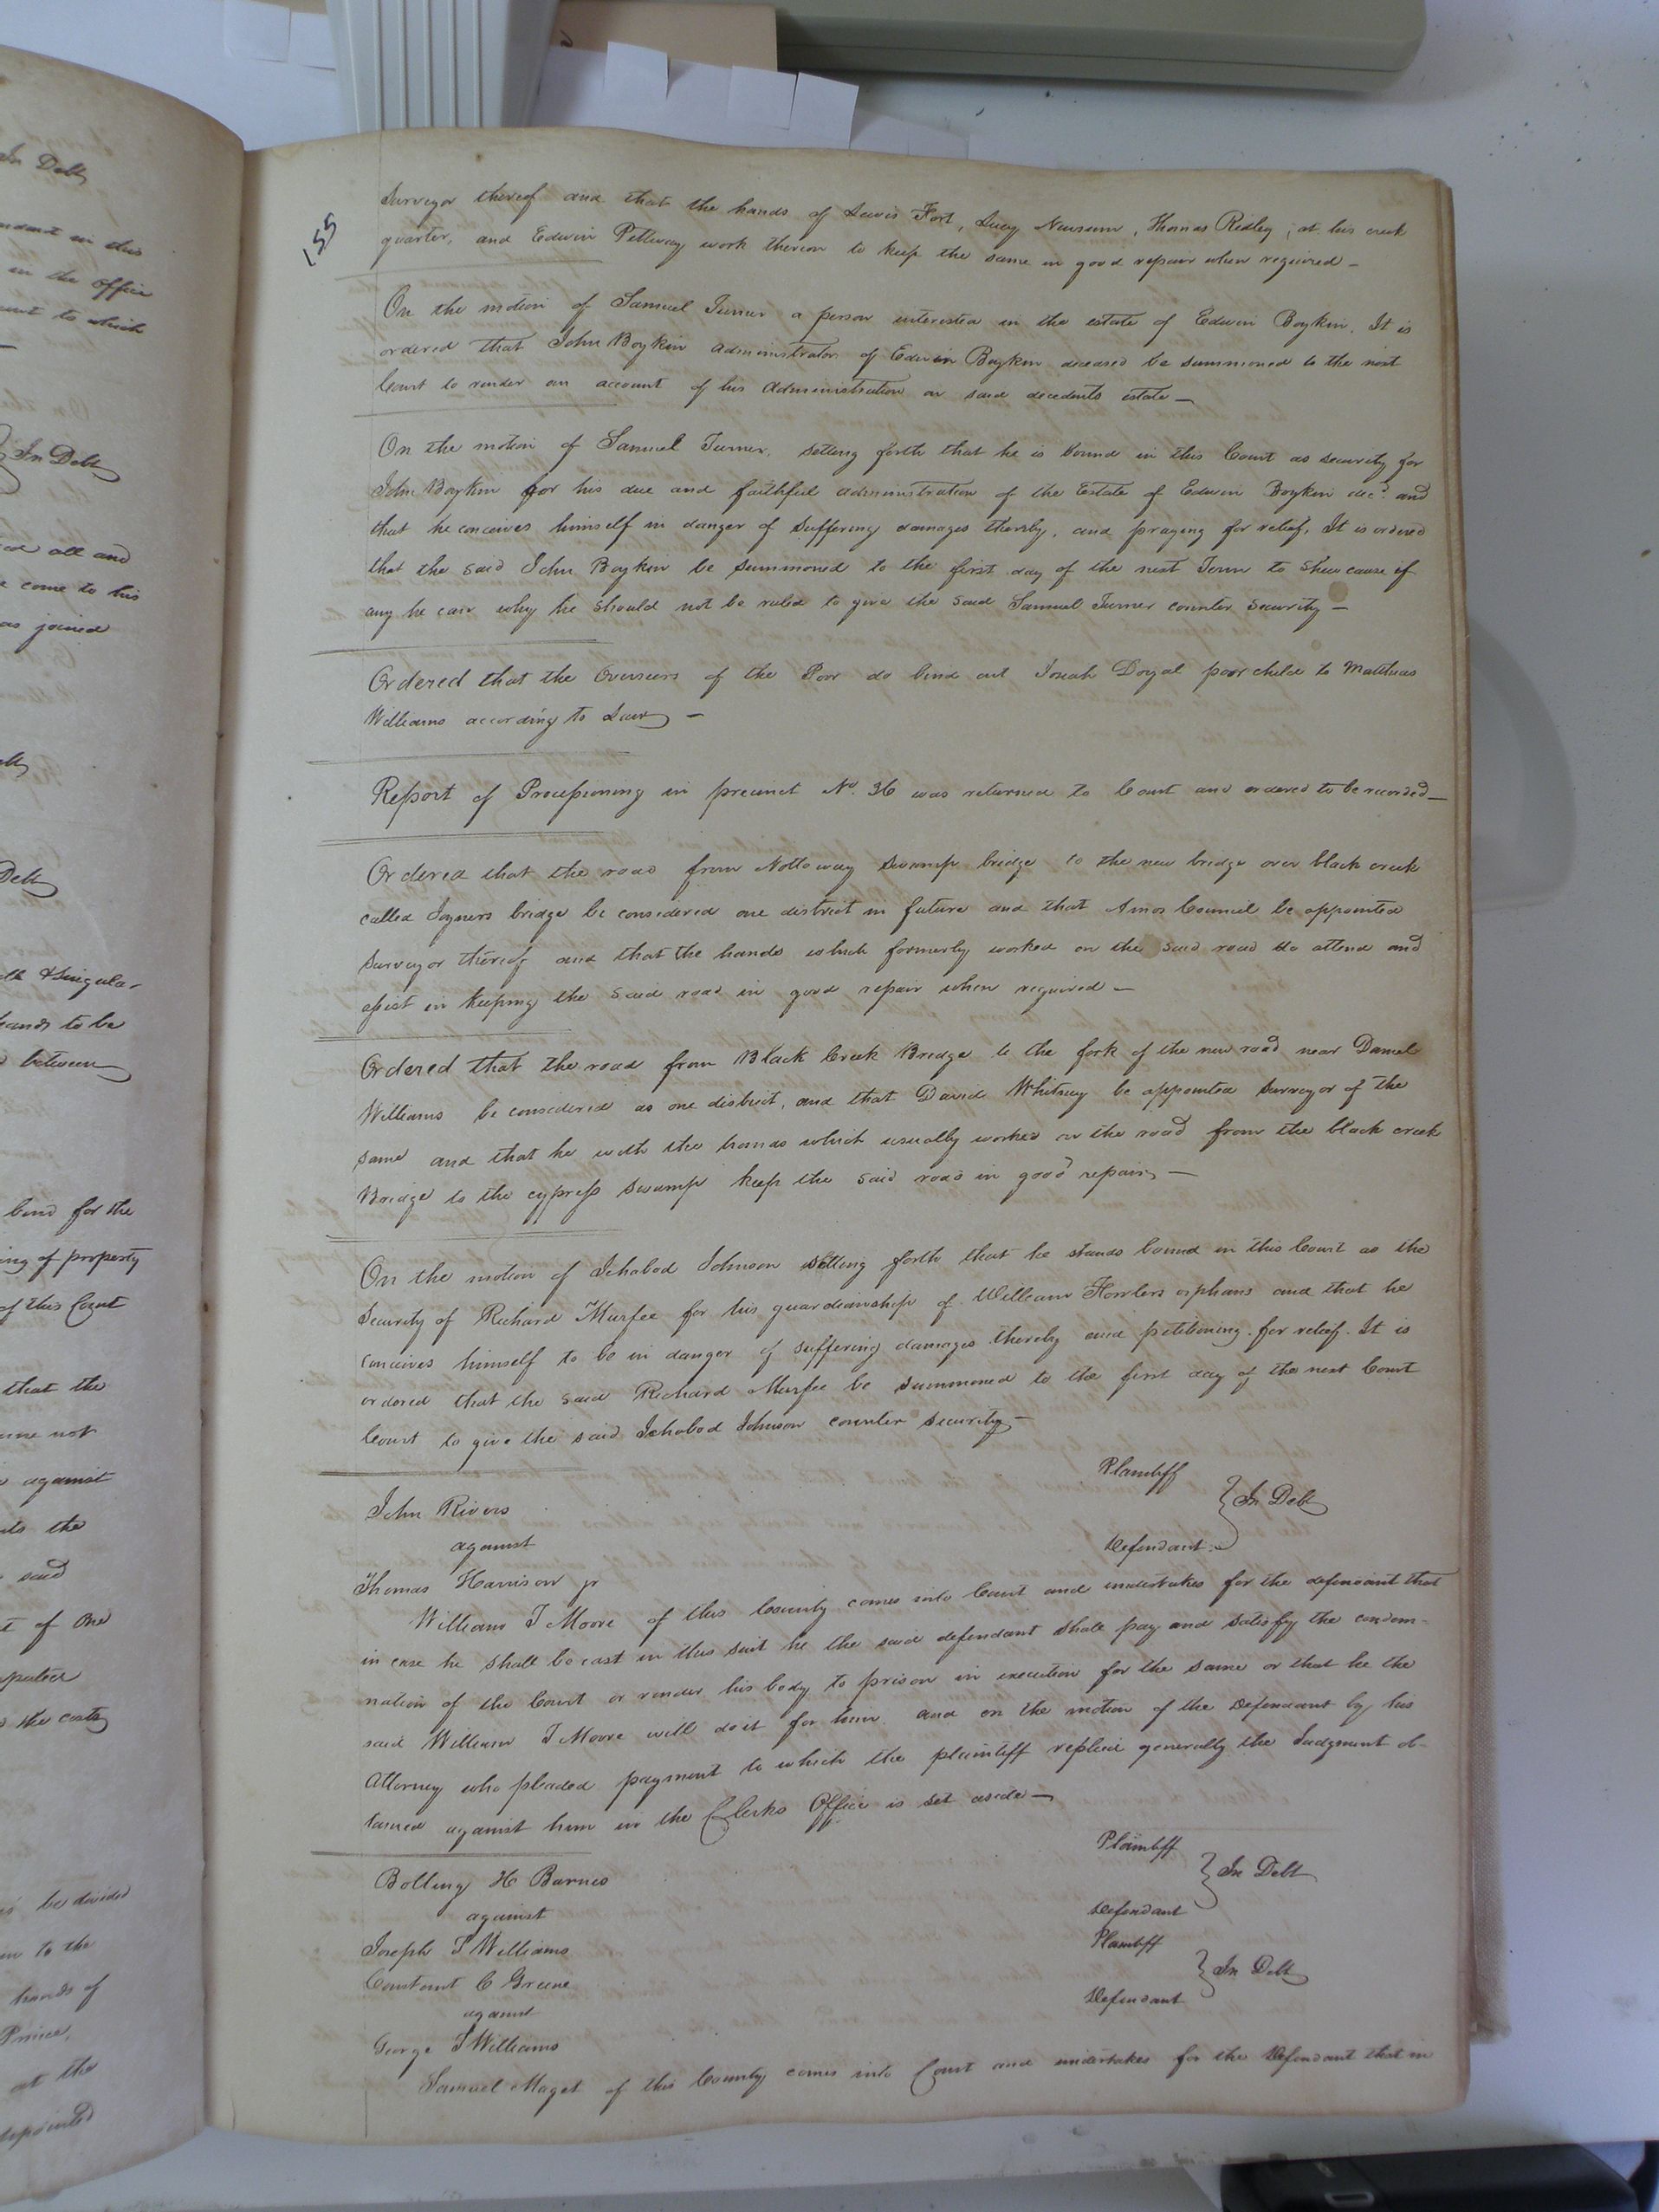 155
Surveyor thereof and that the hands of Lewis Fort, Lucy Newsum, Thomas Ridley, at his creek
quarter, and Edwin Pettway work thereon to keep the same in good repair when required –
On the motion of Samuel Turner a person interested in the estate of Edwin Boykin. It is
ordered that John Boykin administrator of Edwin Boykin deceased be summoned to the next
Court to render an account of his administration on said decedents estate –
On the motion of Samuel Turner, setting forth that he is bound in this Court as security for
John Boykin for his due and faithful administration of the Estate of Edwin Boykin decd and
that he conceives himself in danger of suffering damages thereby, and praying for relief, It is ordered
that the said John Boykin be summoned to the first day of the next Term to shew cause if
any he can why he should not be ruled to give the said Samuel Turner counter security –
Ordered that the Overseers of the Poor do bind out Josiah Doyal poor child to Matthias
Williams according to Law –
Report of Processioning in precinct No. 36 was returned to Court and ordered to be recorded –
Ordered that the road from Nottoway Swamp bridge to the new bridge over black creek
called Joyners bridge be considered one district in future and that Amos Council be appointed
Surveyor thereof and that the hands which formerly worked on the said road do attend and
assist in keeping the said road in good repair when required –
Ordered that the road from Black Creek Bridge to the fork of the new road near Daniel
Williams be considered as one district, and that David Whitney be appointed Surveyor of the
same and that he with the hands which usually worked on the road from the black creek
Bridge to the cypress swamp keep the said road in good repair –
On the motion of Ichabod Johnson setting forth that he stands bound in this Court as the
Security of Richard Murfee for his guardianship of William Fowlers orphans and that he
conceives himself to be in danger of suffering damages thereby and petitioning for relief. It is
ordered that the said Richard Murfee be summoned to the first day of the next Court
Court to give the said Ichabod Johnson counter security –
John Rivers Plaintiff
against } In Debt
Thomas Harrison jr Defendant
William T Moore of this County comes into Court and undertakes for the defendant that
in case he shall be cast in this suit he the said defendant shall pay and satisfy the condem-
nation of the Court or render his body to prison in execution for the same or that he the
said William T Moore will do it for him. and on the motion of the Defendant by his
Attorney who pleaded payment to which the plaintiff replied generally the Judgment ob-
tained against him in the Clerks Office is set aside –
Bolling H Barnes Plaintiff
against } In Debt
Joseph T Williams Defendant
Constant C Greene Plaintiff
against } In Debt
George T Williams Defendant
Samuel Maget of this County comes into Court and undertakes for the Defendant that in
In Debt
in the office
In Debt
come to his
as joined
hands to be
between
bond for the
ing of property
of this Court
that the
against
said
of One
the costs
be divided
in to the
hands of
at the
appointed